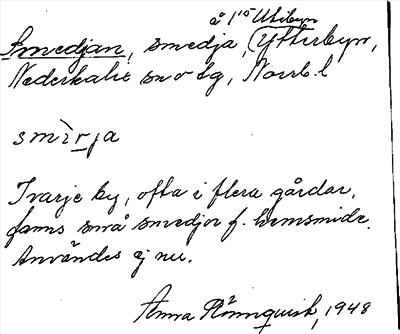 å 1/10 Utibyn
Smedjan, smedja, (Ytterbyn,
Nederkalix sn o tg, Norrb. l
smìrja
I varje by, ofta i flera gårdar,
fanns små smedjor f. hemsmide.
Användes ej nu.
Anna Rönnquist, 1948